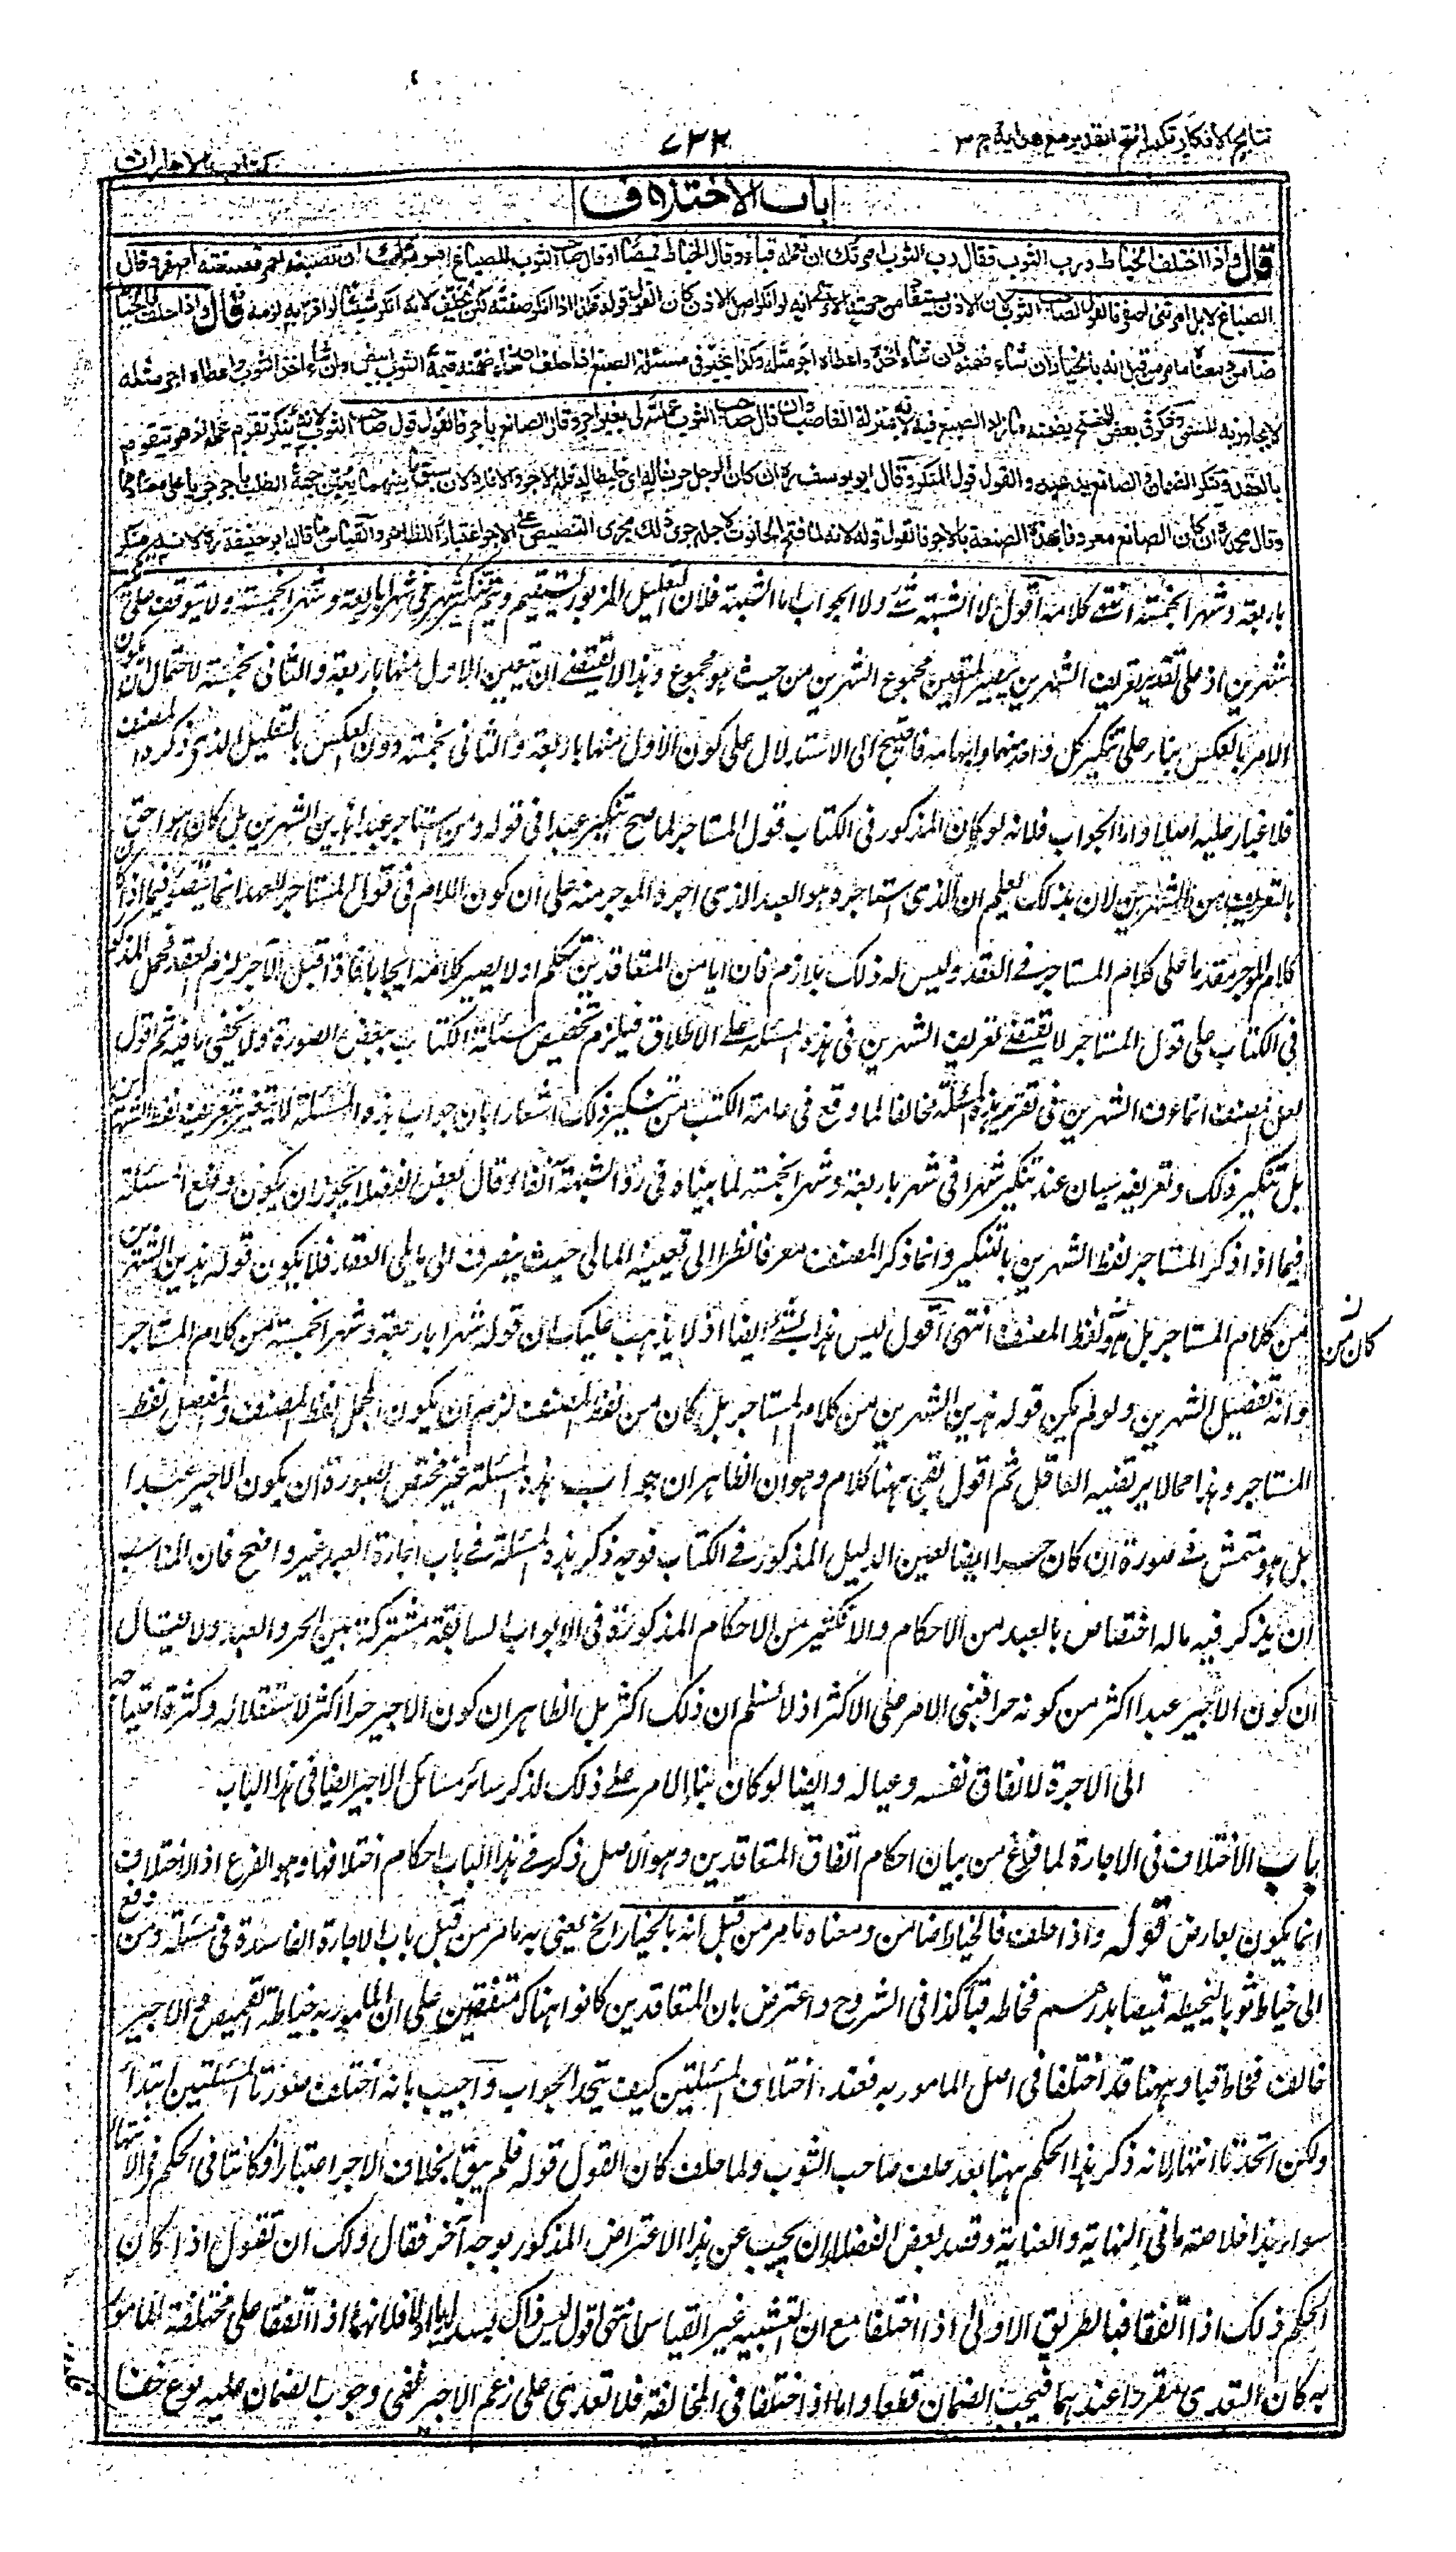 نتايج الأفكار تكملة فتح القدير مع هداية ج ٣
٧٣٢
كتاب الاجارات
باب الاختلاف
قال واذا اختلف الخياط ورب الثوب فقال رب الثوب امرتك ان تعمله قباء وقال الخياط قميصا او قال صاحب الثوب للصباغ امرتك ان تصبغه احمر فصبغته اصفر وقال
الصباغ لا بل امرتني اصفر فالقول لصاحب الثوب لان الاذن يستفاد من جهته الا ترى انه لو انكر اصل الاذن كان القول قوله فكذا اذا انكر صفته لكن يحلف لانه انكر شيئا لو اقر به لزمه قال واذا حلف فالخياط
ضامن ومعناه ما مر من قبل انه بالخيار ان شاء ضمنه وان شاء اخذه واعطاه اجر مثله وكذا يخير في مسئلة الصبغ اذا حلف ان شاء ضمنه قيمة الثوب ابيض وان شاء اخذ الثوب واعطاه اجر مثله
لا يجاوز به المسمى وذكر في بعض النسخ يضمنه ما زاد الصبغ فيه لانه بمنزلة الغاصب وان قال صاحب الثوب عملته لي بغير اجر وقال الصانع باجر فالقول قول صاحب الثوب لانه ينكر تقوم عمله اذ هو يتقوم
بالعقد وينكر الضمان والصانع يدعيه والقول قول المنكر وقال ابو يوسف ره ان كان الرجل حريفا له اي خليطا له فله الاجر والا فلا لان سبق ما بينهما يعين جهة الطلب باجر جريا على معتادهما
وقال محمد ره ان كان الصانع معروفا بهذه الصنعة بالاجر فالقول قوله لانه لما فتح الحانوت لاجله جرى ذلك مجرى التنصيص على الاجر اعتبارا للظاهر والقياس ما قاله ابو حنيفة ره لانه منكر
باربعة وشهرا بخمسة انتهى كلامه اقول لا الشبهة شئ ولا الجواب اما الشبهة فلان التعليل المزبور يستقيم ويتم بتنكير شهر في شهرا باربعة وشهرا بخمسة ولا يتوقف على تنكير
شهرين اذ على تقدير تعريف الشهرين يصير المتعين مجموع الشهرين من حيث هو مجموع وهذا لا يقتضي ان يتعين الاول منها باربعة والثاني بخمسة لاحتمال ان يكون
الامر بالعكس بناء على تنكير كل واحد منهما وابهامه فاحتيج الى الاستدلال على كون الاول منهما باربعة والثاني بخمسة دون العكس بالتعليل الذي ذكره المصنف
فلا غبار عليه اصلا واما الجواب فلانه لو كان المذكور في الكتاب قول المستاجر لما صح تنكير عبدا في قوله ومن استاجر عبدا هذين الشهرين بل كان هو احق
بالتعريف من الشهرين لان بذلك يعلم ان الذي استاجره هو العبد الذي اجره الموجر منه على ان كون اللام في قول المستاجر للعهد انما يتصور فيما اذا كان
كلام الموجر مقدما على كلام المستاجر في العقد وليس له ذلك بلازم فان ايا من المتعاقدين تكلم اولا يصير كلامه ايجابا فاذا قبل الآخر لزم العقد فحمل المذكور
في الكتاب على قول المستاجر لا يقتضي تعريف الشهرين في هذه المسئلة على الاطلاق فيلزم تخصيص مسئلة الكتاب ببعض الصورة ولا يخفى ما فيه ثم اقول
لعل المصنف انما عرف الشهرين في تقرير هذه المسئلة مخالفا لما وقع في عامة الكتب من تنكير ذلك اشعارا بان جواب هذه المسئلة لا يتغير بتعريف لفظ الشهرين
بل تنكير ذلك وتعريفه سيان عند تنكير شهرا في شهر باربعة وشهرا بخمسة لما بيناه في رد الشبهة آنفا وقال بعض الفضلاء يجوز ان يكون وضع المسئلة
فيما اذا ذكر المستاجر لفظ الشهرين بالتنكير وانما ذكر المصنف معرفا نظرا الى تعينه المالي حيث ينصرف الى ما يلي العقد فلا يكون قوله هذين الشهرين
من كلام المستاجر بل هو لفظ المصنف انتهى اقول ليس هذا بشئ ايضا اذ لا يذهب عليك ان قوله شهرا باربعة وشهرا بخمسة من كلام المستاجر
كان من
وانه تفصيل الشهرين ولو لم يكن قوله هذين الشهرين من كلام المستاجر بل كان من لفظ المصنف لزم ان يكون المجمل لفظ المصنف والمفصل لفظ
المستاجر وهذا مما لا يرتضيه العاقل ثم اقول بقي ههنا كلام وهو ان الظاهر ان جواب هذه المسئلة غير مختص بصورة ان يكون الاجير عبدا
بل هو متمش في صورة ان كان حرا ايضا لعين الدليل المذكور في الكتاب فوجه ذكر هذه المسئلة في باب اجارة العبد غير واضح فان المناسب
ان يذكر فيه ما له اختصاص بالعبد من الاحكام والا فكثير من الاحكام المذكورة في الابواب السابقة مشتركة بين الحر والعبد ولا يقال
ان كون الاجير عبدا اكثر من كونه حرا فبنى الامر على الاكثر اذ لا نسلم ان ذلك اكثر بل الظاهر ان كون الاجير حرا اكثر لاستقلاله وكثرة احتياجه
الى الاجرة لانفاق نفسه وعياله وايضا لو كان بناء الامر على ذلك لذكر سائر مسائل الاجير ايضا في هذا الباب
باب الاختلاف في الاجارة لما فرغ من بيان احكام اتفاق المتعاقدين وهو الاصل ذكر في هذا الباب احكام اختلافهما وهو الفرع اذ الاختلاف
انما يكون بعارض قوله واذا حلف فالخياط ضامن ومعناه ما مر من قبل انه بالخيار الخ يعني به ما مر من قبل باب الاجارة الفاسدة في مسئلة ومن دفع
الى خياط ثوبا ليخيطه قميصا بدرهم فخاطه قباء كذا في الشروح واعترض بان المتعاقدين كانوا هناك متفقين على ان المامور به خياطة القميص والاجير
خالف فخاط قباء وههنا قد اختلفا في اصل المامور به فعند اختلاف المسئلتين كيف يتحد الجواب واجيب بانه اختلفت صورتا المسئلتين ابتداء
ولكن اتحدتا انتهاء لانه ذكر هذا الحكم ههنا بعد حلف صاحب الثوب ولما حلف كان القول قوله فلم يبق لخلاف الاجير اعتبار فكانتا في الحكم في الانتهاء
سواء هذا خلاصة ما في النهاية والعناية وقصد بعض الفضلاء ان يجيب عن هذا الاعتراض المذكور بوجه آخر فقال ولك ان تقول اذا كان
الحكم ذلك اذا اتفقا فبالطريق الاولى اذا اختلفا مع ان التشبيه غير القياس انتهى اقول ليس ذاك بسديد اما اولا فلانهما اذا اتفقا على مخالفة المامور
به كان التعدي متقررا عندهما فيجب الضمان قطعا واما اذا اختلفا في المخالفة فلا تعدي على زعم الاجير ففي وجوب الضمان عليه نوع خفاء